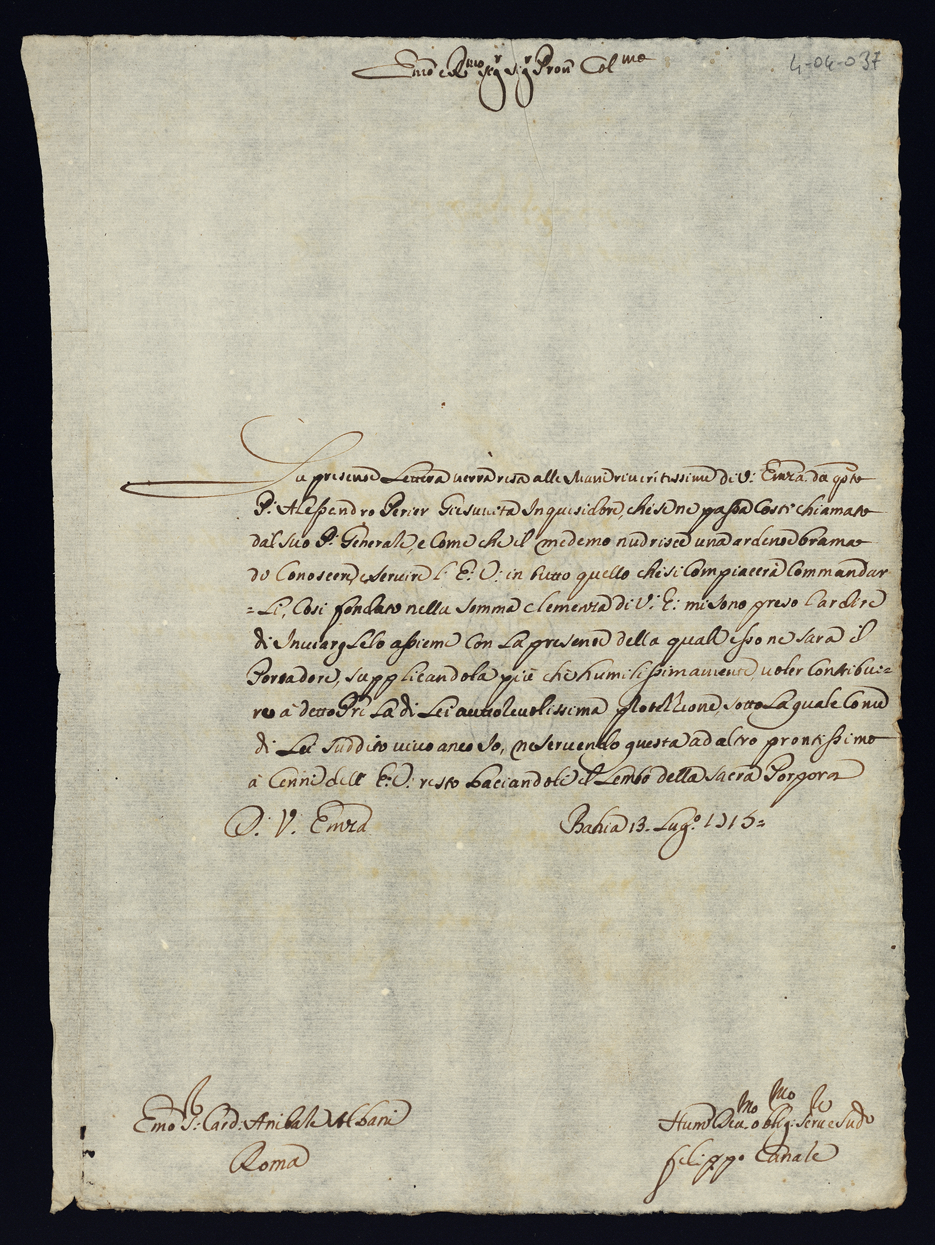 Emo e Rmo Sigr Sigr Pron Colmo
4-04-037
La presente Lettera verrà resa alle Mani riveritissime di V: Emza da qsto
P: Alessandro Perier Giesuvita Inquisidore, che se ne passa Costì chiamato
dal suo P: Generale, e Come che il medemo nudrisce una ardente brama
di Conoscere, e servire l' E: V: in tutto quello che si Compiacerà Commandar=
=Li, Cosi fondato nella somma Clemenza di V: E: mi sono preso l'ardire
di Inviarglielo assieme Con La presente della quale esso ne sarà il
Portadore, supplicandola più che humilissimamente, voler Contribui=
re à detto Pre La di Lei auttorevolissima protettione, sotto La quale Come
di Lei suddito vivo anco Io, ne servendo questa ad altro prontissimo
à Cenni dell' E: V: resto baciandoli il Lembo della sacra Porpora
D: V: Emza
Bahia 13. Lug.o 1715=
Emo Sr: Card: Anibale Albani
Roma
Hummo Devmo obblig: Serv e Sudo
Filippo Canale